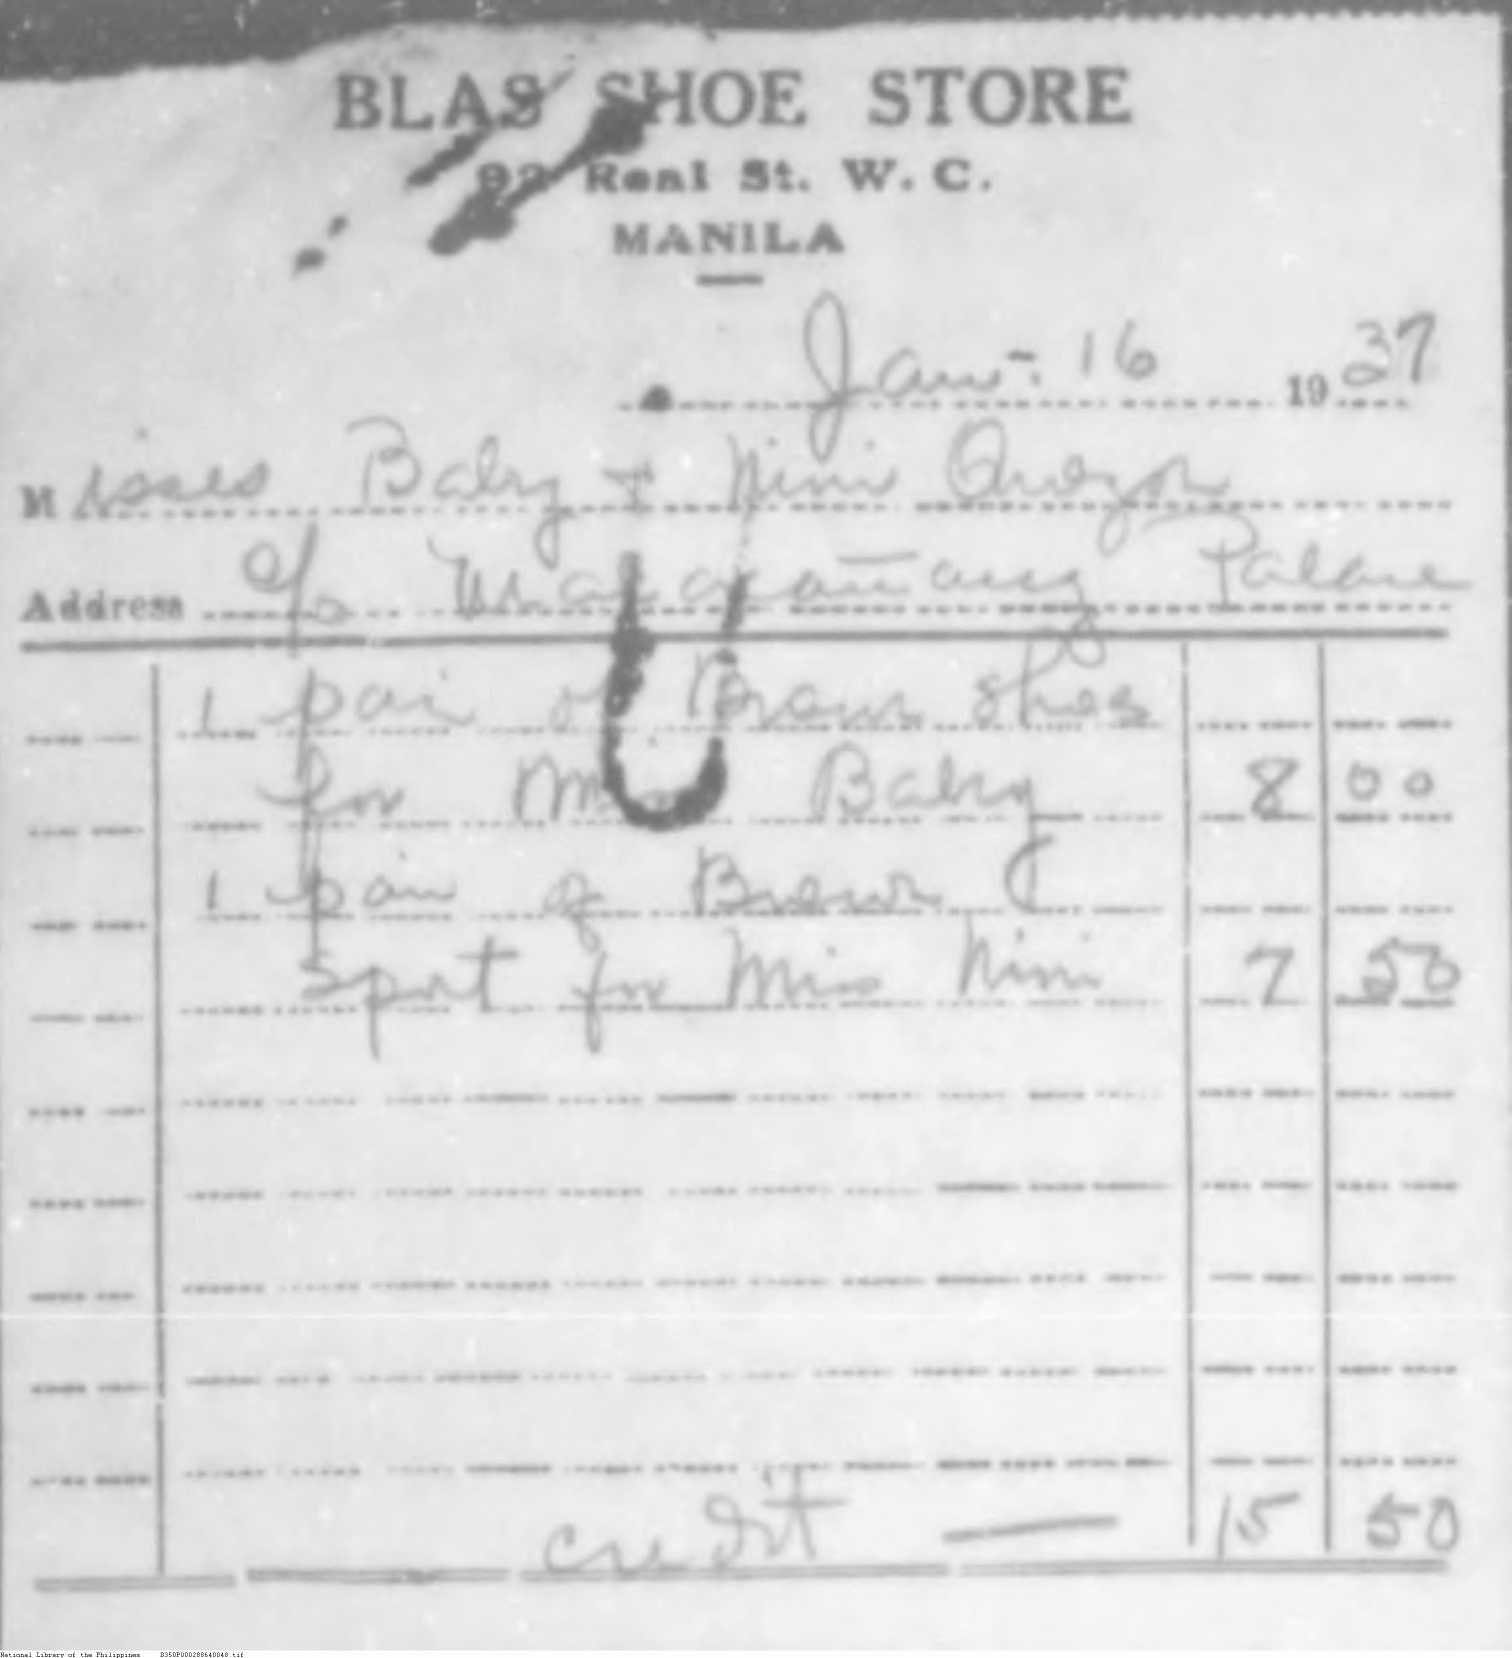 BLAS SHOE STORE
92 Real St. W. C.
MANILA
Jan. 16 1937
Misses Baby & Nini Quezon
Address c/o Malacañang Palace
1 pair of Brown shoes
for Miss Baby 8 00
1 pair of Brown
Sport for Miss Nini 7 50
credit — 15 50
National Library of the Philippines D350P000288640048.tif